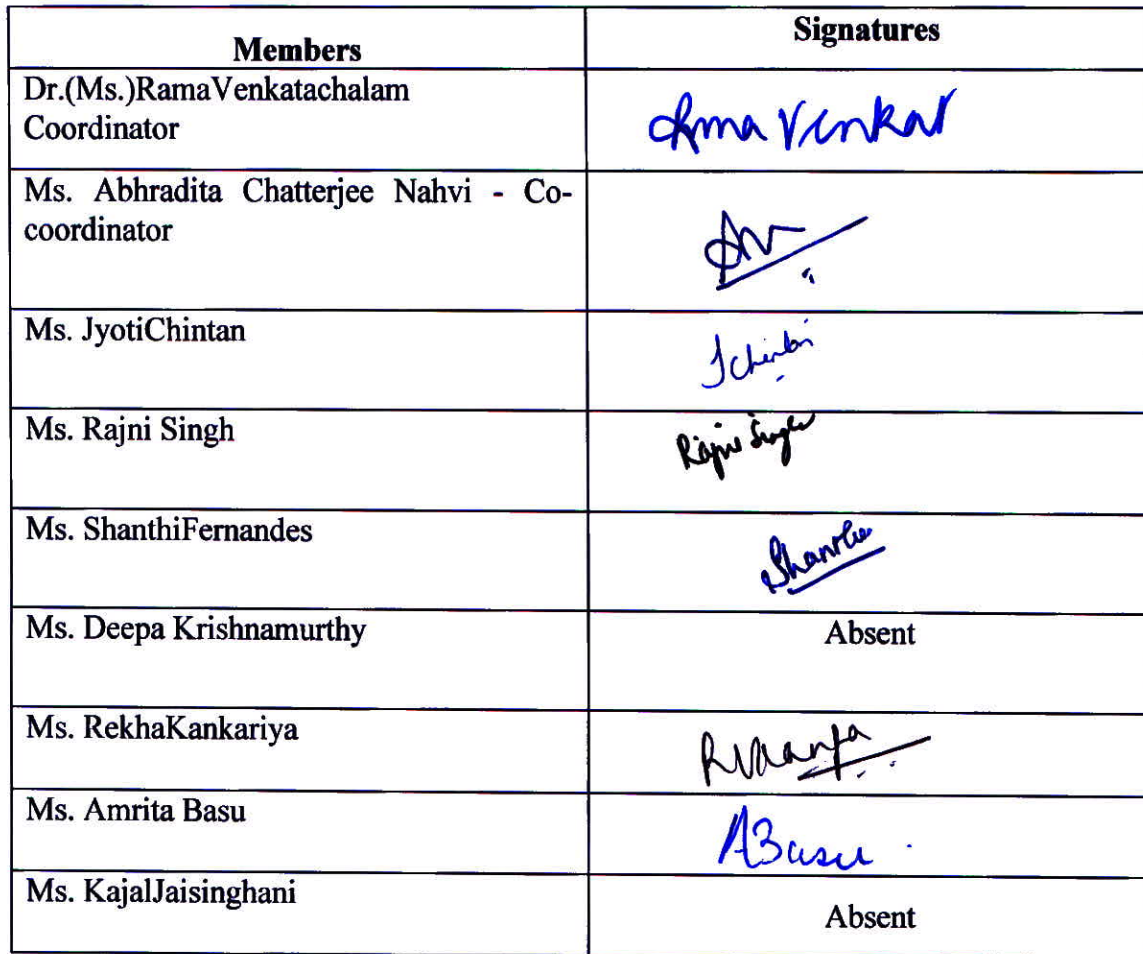 Members
Signatures
Dr.(Ms.)RamaVenkatachalam
Coordinator
Rama Venkat
Ms. Abhradita Chatterjee Nahvi - Co-
coordinator
Ms. JyotiChintan
Ms. Rajni Singh
Rajni Singh
Ms. ShanthiFernandes
Ms. Deepa Krishnamurthy
Absent
Ms. RekhaKankariya
Ms. Amrita Basu
ABasu
Ms. KajalJaisinghani
Absent